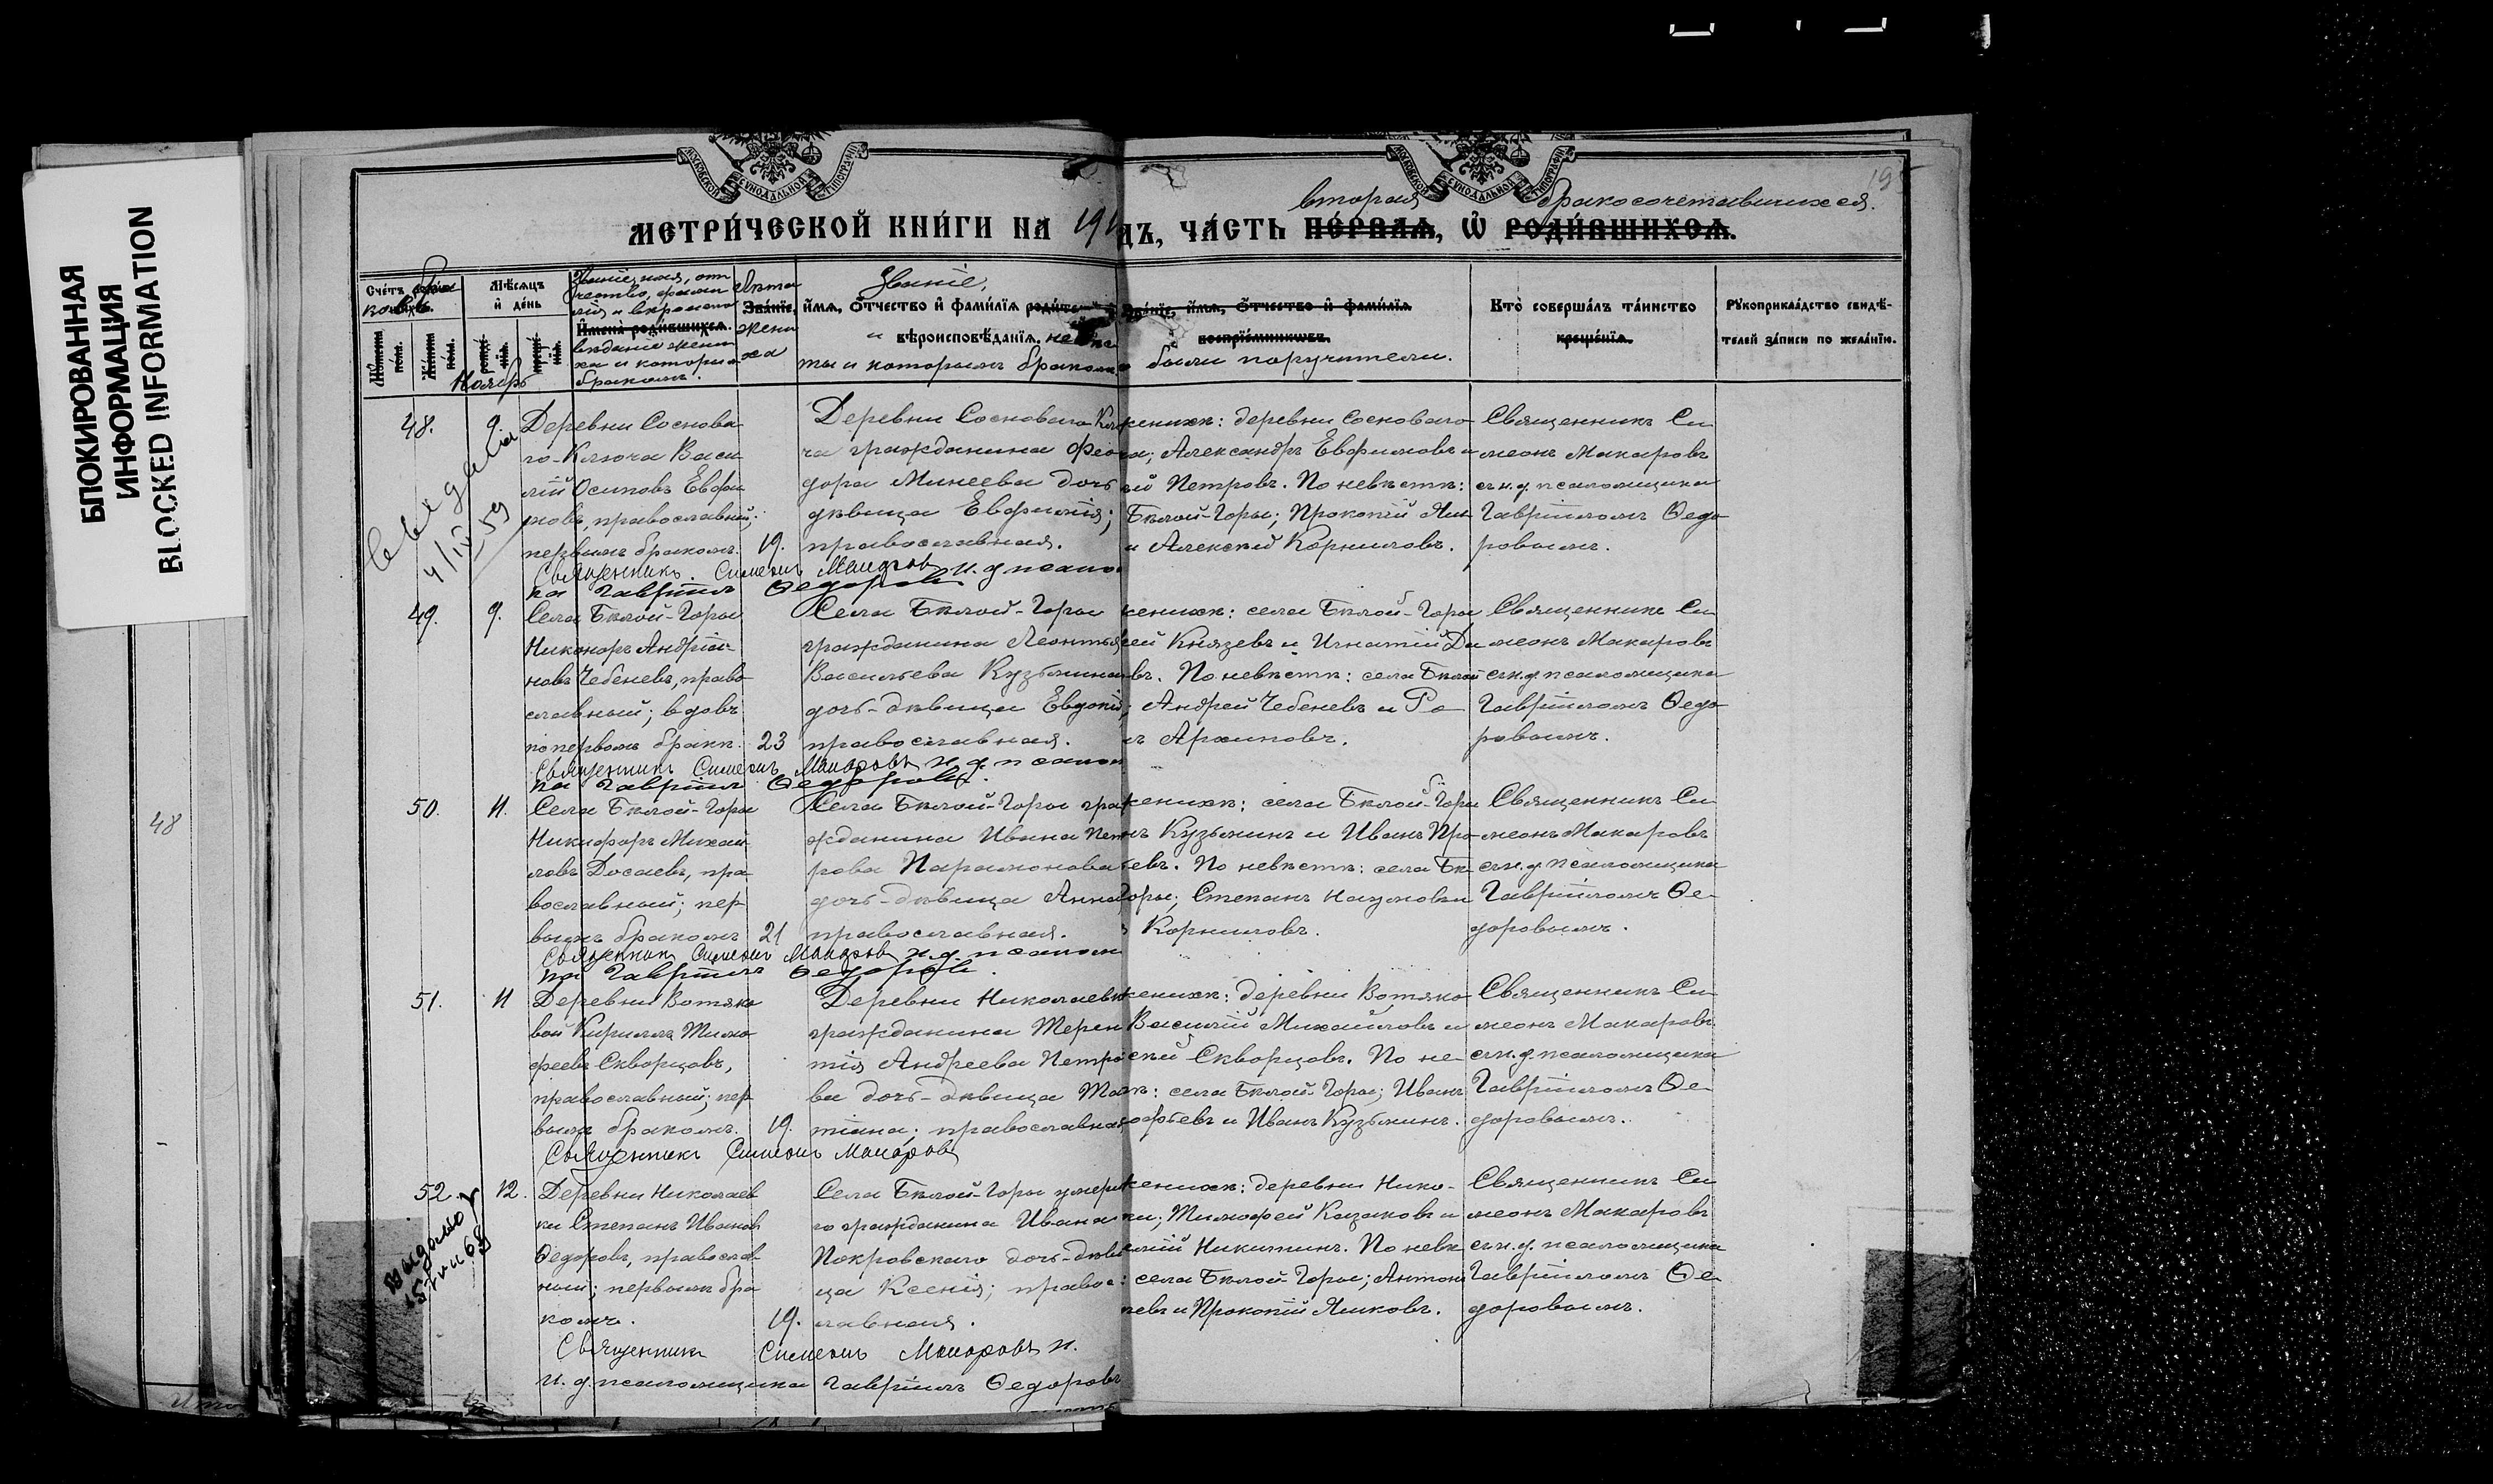 БЛОКИРОВАННАЯ
ИНФОРМАЦИЯ
BLOCKED INFORMATION
48
МОСКОВСКОЙ СѴНОДАЛЬНОЙ ТИПОГРАФІИ
МОСКОВСКОЙ СѴНОДАЛЬНОЙ ТИПОГРАФІИ
195
вторая бракосочетавшихся.
МЕТРИ́ЧЕСКОЙ КНИ́ГИ НА 191 ДЪ, ЧА́СТЬ ПЕ́РВАѦ, Ѡ҆ РОДИ́ВШИХСѦ.
Сче́тъ браковъ.
Мѣ́сяцъ и҆ де́нь
Званіе, имя, отчество, фамилія и вѣроисповѣданіе жениха и которымъ бракомъ.
И҆мена̀ роди́вшихся.
Лѣта жениха
Званіе,
Зва́ніе, и҆́мя, ѻ҆́тчество и҆ фами́лія
и вѣроисповѣ́данія. невѣсты и которымъ бракомъ
Зва́ніе, и҆́мя, ѻ҆́тчество и҆ фами́лія воспріе́мниковъ.
были поручители.
Кто̀ соверша́лъ та́инство креще́нія.
Рꙋкоприкла́дство свидѣ́телей за́писи по жела́нію.
Ноябрь
48. 9.
Деревни Сосноваго-Ключа Василій Осиповъ Евфимовъ, православный; первымъ бракомъ.
19.
Деревни Сосноваго Клю
ча гражданина Фео
дора Минеева дочь
дѣвица Евфимія;
православная.
жениха: деревни Сосноваго
ча; Александръ Евфимовъ и
ей Петровъ. По невѣстѣ:
Бѣлой-Горы; Прокопій Яш
и Алексѣй Корниловъ.
Священникъ Си
меонъ Макаровъ
съ и. д. псаломщика
Гавріиломъ Ѳедо
ровымъ.
4/IV 59
Священникъ Симеонъ Макаровъ И. д псалом
ка Гавріилъ Ѳедоровъ
49. 9.
Села Бѣлой-Горы
Никаноръ Андріа-
новъ Чебеневъ, право
славный; вдовъ
по первомъ бракѣ.
23
Села Бѣлой-Горы
гражданина Леонтья
Васильева Кузьмина
дочь-дѣвица Евдокія
православная.
жениха: села Бѣлой-Горы
гей Князевъ и Игнатій Да
въ. По невѣстѣ: села Бѣлой
; Андрей Чебеневъ и Ро
нъ Архиповъ.
Священникъ Си
меонъ Макаровъ
съ и. д. псаломщика
Гавріиломъ Ѳедо
ровымъ.
Священникъ Симеонъ Макаровъ и. д. псалом
ка Гавріилъ Ѳедоровъ.
50. 11.
Села Бѣлой-Горы
Никифоръ Михаи
ловъ Досаевъ, пра
вославный; пер
вымъ бракомъ
21
Села Бѣлой-Горы гра
жданина Ивана Пет
рова Парамонова
дочь-дѣвица Анна
православная.
жениха: села Бѣлой-Горы
нъ Кузьминъ и Иванъ Про
евъ. По невѣстѣ: села Бѣ
Горы; Степанъ Наумовъ и
Корниловъ.
Священникъ Си
меонъ Макаровъ
съ и. д. псаломщика
Гавріиломъ Ѳе-
доровымъ.
Священникъ Симеонъ Макаровъ и. д. псалом
ка Гавріилъ Ѳедоровъ.
51. 11
Деревни Вотяко
вой Кириллъ Тимо
феевъ Скворцовъ,
православный; пер
вымъ бракомъ.
19.
Деревни Николаевк
гражданина Терен
тія Андреева Петро
ва дочь-дѣвица Та
тіана; православная
жениха: деревни Вотяко
Василій Михайловъ и
ей Скворцовъ. По не-
ѣ: села Бѣлой-Горы; Иванъ
офьевъ и Иванъ Кузьминъ.
Священникъ Си
меонъ Макаровъ
съ и. д. псаломщика
Гавріиломъ Ѳе-
доровымъ.
Священникъ Симеонъ Макаровъ
52. 12.
Деревни Николаев
ки Степанъ Ивановъ
Ѳедоровъ, православ
ный; первымъ бра
комъ.
19.
Села Бѣлой-Горы умерш
го гражданина Ивана
Покровскаго дочь-дѣви
ца Ксенія; правос
лавная.
жениха: деревни Нико-
ки; Тимофей Казаковъ и
силій Никитинъ. По невѣ
: села Бѣлой-Горы; Антонъ
невъ и Прокопій Яшковъ.
Священникъ Си
меонъ Макаровъ
съ и. д. псаломщика
Гавріиломъ Ѳе
доровымъ.
Священникъ Симеонъ Макаровъ и.
и. д. псаломщика Гавріилъ Ѳедоровъ